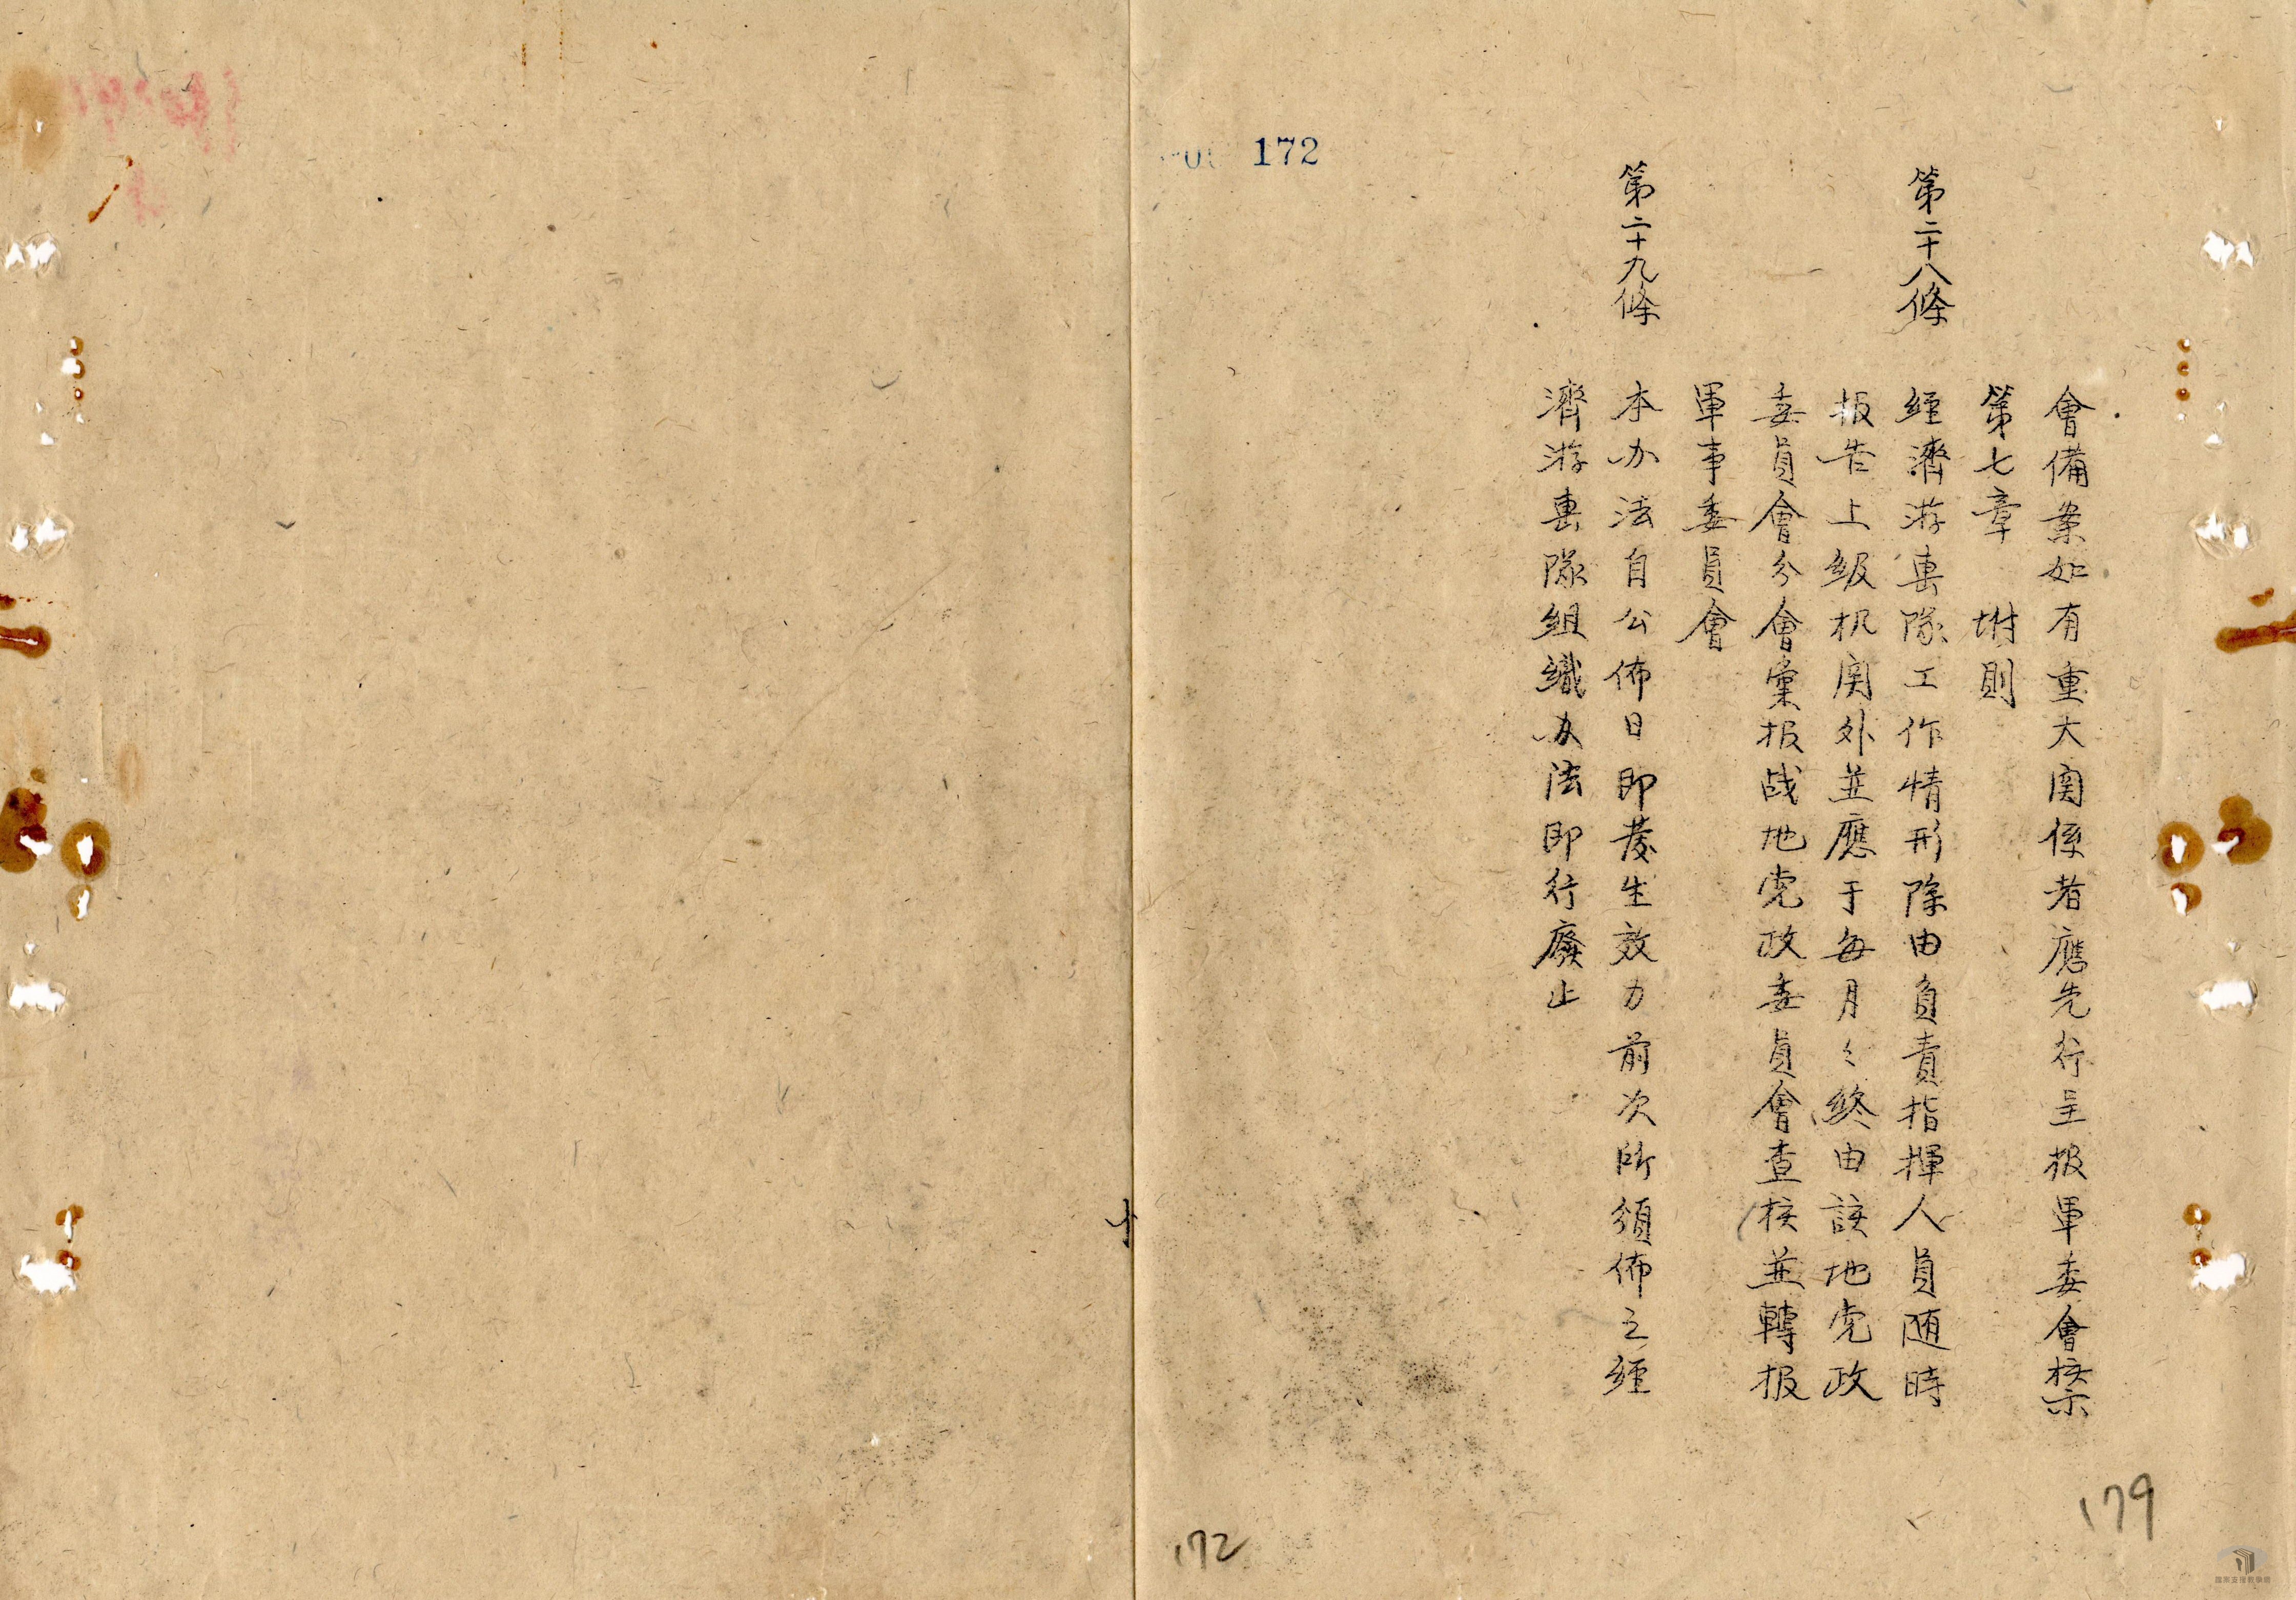 會備案如有重大関係者應先行呈报軍委會核禁
第七章　坿則
第二十八條　經濟游專隊工作情形除由負責指揮人員随時
报告上級机関外並應于每月々終由該地党政
委員會分會彙报战地党政委員會查核並轉报
軍事委員會
第二十九條　本办法自公佈日即發生效力前次所頒佈之經
濟游專隊組織办法即行廢止
172
179
172
十